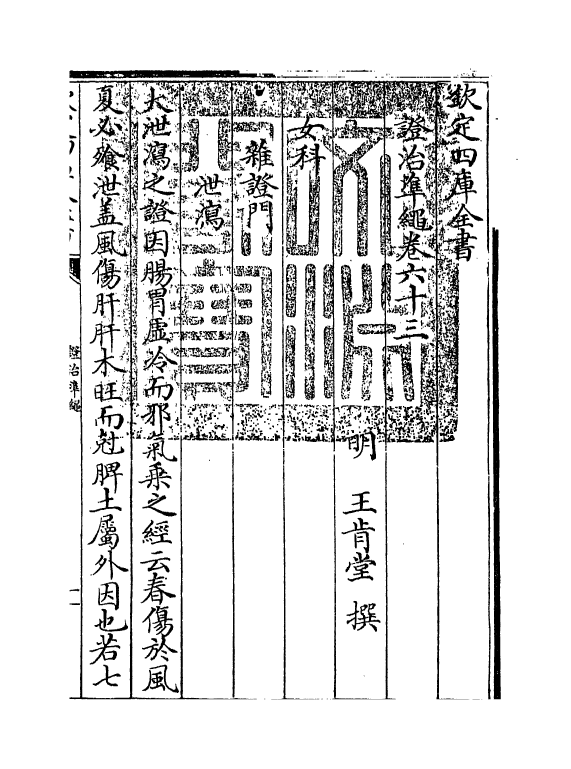 欽定四庫全書
證治準繩卷六十三
明 王肯堂 撰
女科
雜證門
泄瀉
大泄瀉之證因腸胃虛冷而邪氣乗之經云春傷於風
夏必飱泄盖風傷肝肝木旺而尅脾土屬外因也若七
證治準繩
一